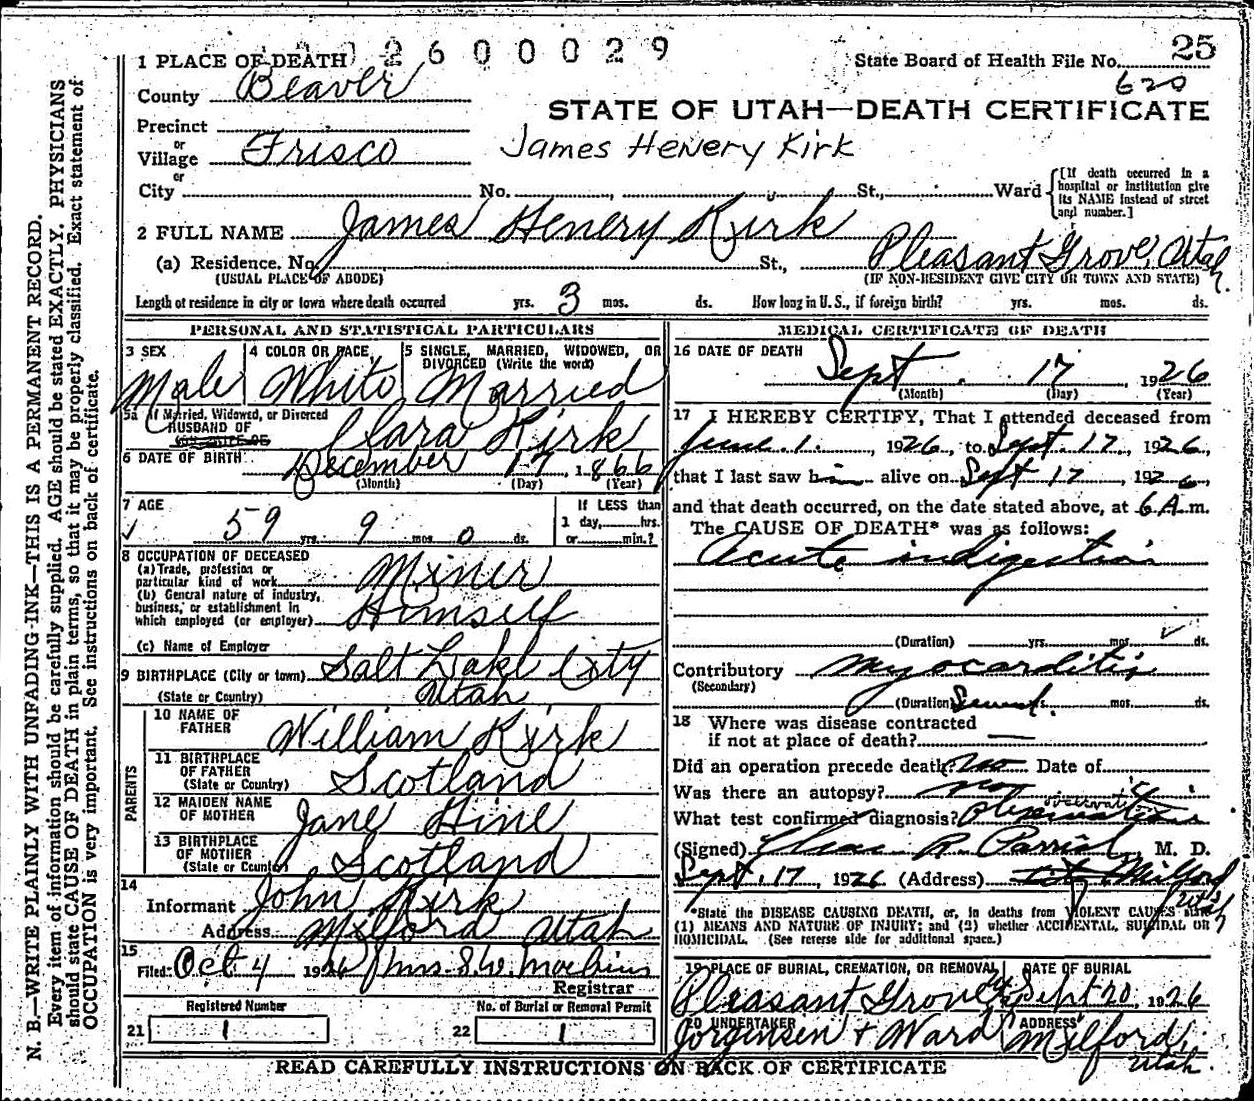 N. B.—WRITE PLAINLY WITH UNFADING INK—THIS IS A PERMANENT RECORD.
Every item of information should be carefully supplied. AGE should be stated EXACTLY. PHYSICIANS
should state CAUSE OF DEATH in plain terms, so that it may be properly classified. Exact statement of
OCCUPATION is very important. See instructions on back of certificate.
2600029
25
1 PLACE OF DEATH
State Board of Health File No.
620
County Beaver
STATE OF UTAH—DEATH CERTIFICATE
Precinct
or
Village Frisco
James Henery Kirk
or
City No. St., Ward
[If death occurred in a
hospital or institution give
its NAME instead of street
and number.]
2 FULL NAME James Henery Kirk
(a) Residence. No. St., Pleasant Grove, Utah.
(USUAL PLACE OF ABODE) (IF NON-RESIDENT GIVE CITY OR TOWN AND STATE)
Length of residence in city or town where death occurred yrs. 3 mos. ds. How long in U. S., if foreign birth? yrs. mos. ds.
PERSONAL AND STATISTICAL PARTICULARS
3 SEX
Male
4 COLOR OR RACE,
White
5 SINGLE, MARRIED, WIDOWED, OR
DIVORCED (Write the word)
Married
5a If Married, Widowed, or Divorced
HUSBAND OF
(OR) WIFE OF
Clara Kirk
6 DATE OF BIRTH December 17, 1866
(Month) (Day) (Year)
7 AGE
59 yrs. 9 mos. 0 ds.
If LESS than
1 day, hrs.
or min.?
8 OCCUPATION OF DECEASED
(a) Trade, profession or
particular kind of work Miner
(b) General nature of industry,
business, or establishment in
which employed (or employer) Himself
(c) Name of Employer
9 BIRTHPLACE (City or town) Salt Lake City
(State or Country) Utah
PARENTS
10 NAME OF
FATHER William Kirk
11 BIRTHPLACE
OF FATHER
(State or Country) Scotland
12 MAIDEN NAME
OF MOTHER Jane Hine
13 BIRTHPLACE
OF MOTHER
(State or Country) Scotland
14
Informant John Kirk
Address Milford Utah
15
Filed Oct 4 1926 Mrs. S.W.
Registrar
Registered Number
21 1
No. of Burial or Removal Permit
22 1
MEDICAL CERTIFICATE OF DEATH
16 DATE OF DEATH
Sept. 17, 1926
(Month) (Day) (Year)
17 I HEREBY CERTIFY, That I attended deceased from
June 1, 1926, to Sept. 17, 1926,
that I last saw him alive on Sept 17, 1926,
and that death occurred, on the date stated above, at 6 A.m.
The CAUSE OF DEATH* was as follows:
Acute indigestion
(Duration) yrs. mos. ds.
Contributory Myocarditis
(Secondary)
(Duration) mos. ds.
18 Where was disease contracted
if not at place of death? —
Did an operation precede death? no Date of
Was there an autopsy? no
What test confirmed diagnosis? observation
(Signed) R. M. D.
Sept. 17, 1926 (Address) Milford
Utah
*State the DISEASE CAUSING DEATH, or, in deaths from VIOLENT CAUSES state
(1) MEANS AND NATURE OF INJURY; and (2) whether ACCIDENTAL, SUICIDAL OR
HOMICIDAL. (See reverse side for additional space.)
19 PLACE OF BURIAL, CREMATION, OR REMOVAL
Pleasant Grove
DATE OF BURIAL
Sept 20, 1926
20 UNDERTAKER
Jorgensen + Ward
ADDRESS
Milford,
Utah.
READ CAREFULLY INSTRUCTIONS ON BACK OF CERTIFICATE